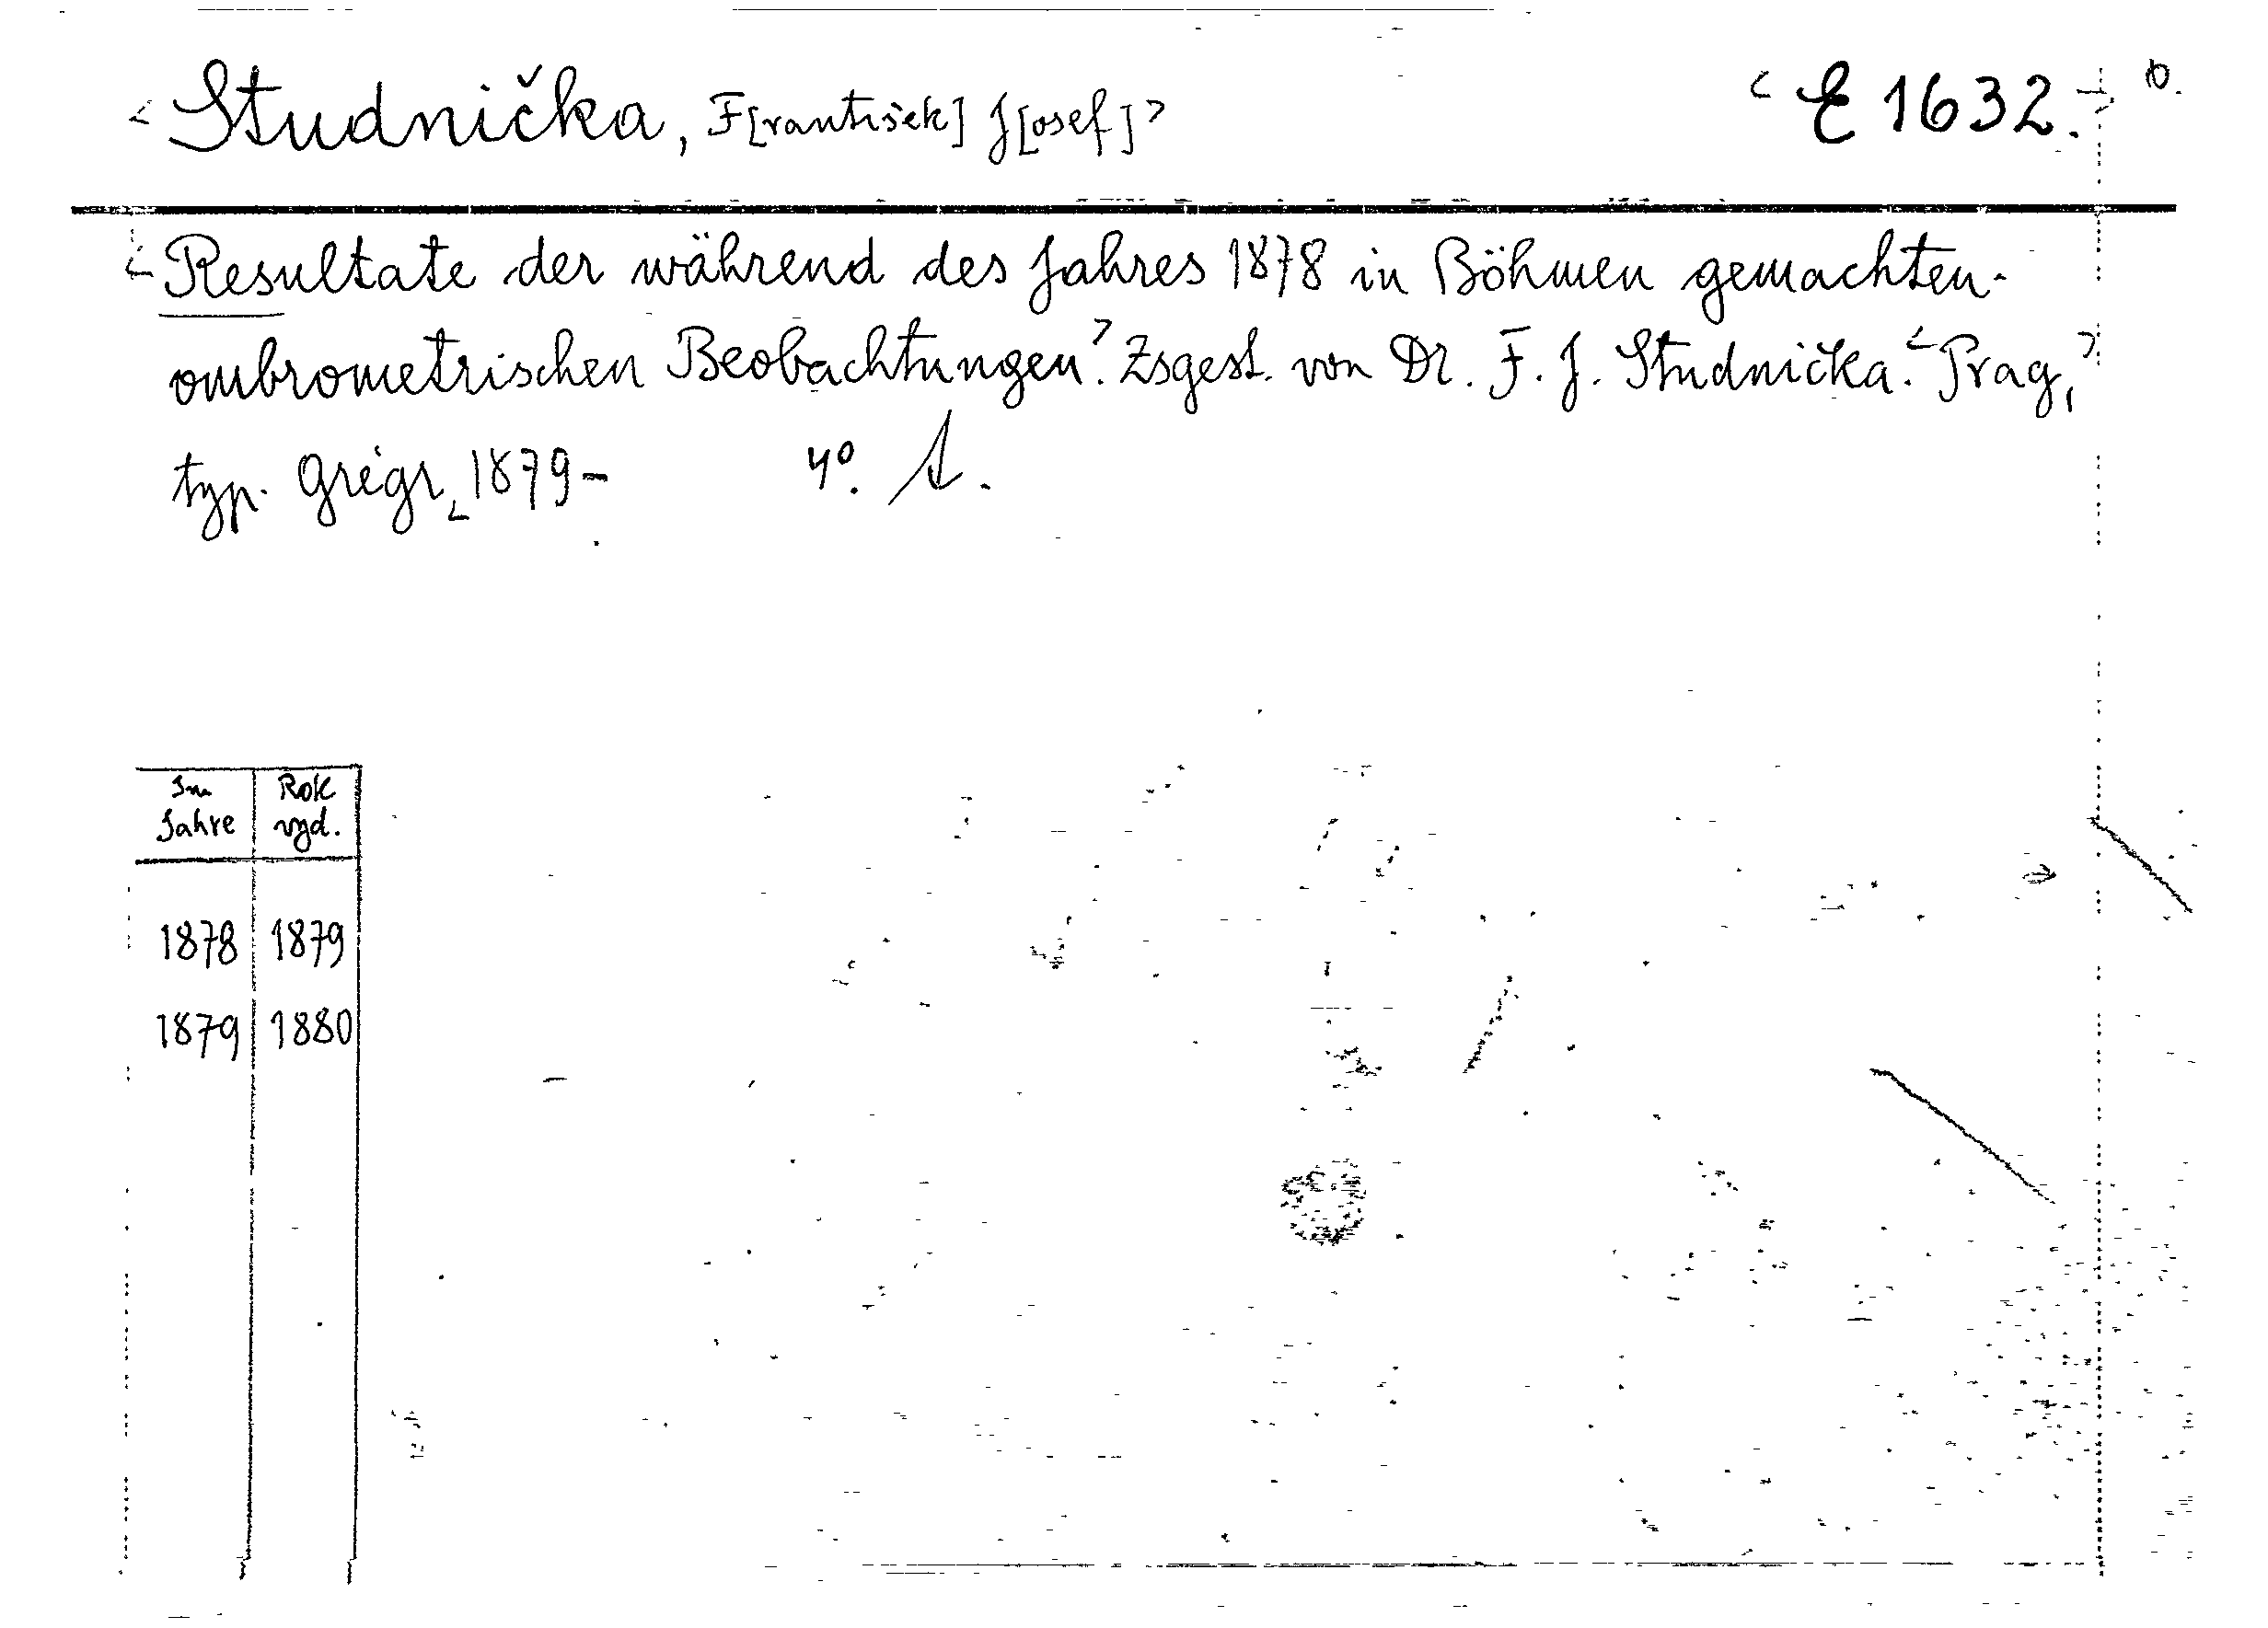 Studnička, F[rantišek] J[osef] E 1632.
Resultate der während des Jahres 1878 in Böhmen gemachten
ombrometrischen Beobachtungen. Zsgest. von Dr. F. J. Studnička. Prag,
typ. Grégr, 1879- 4°.
Im Jahre | Rok vyd.
1878 | 1879
1879 | 1880